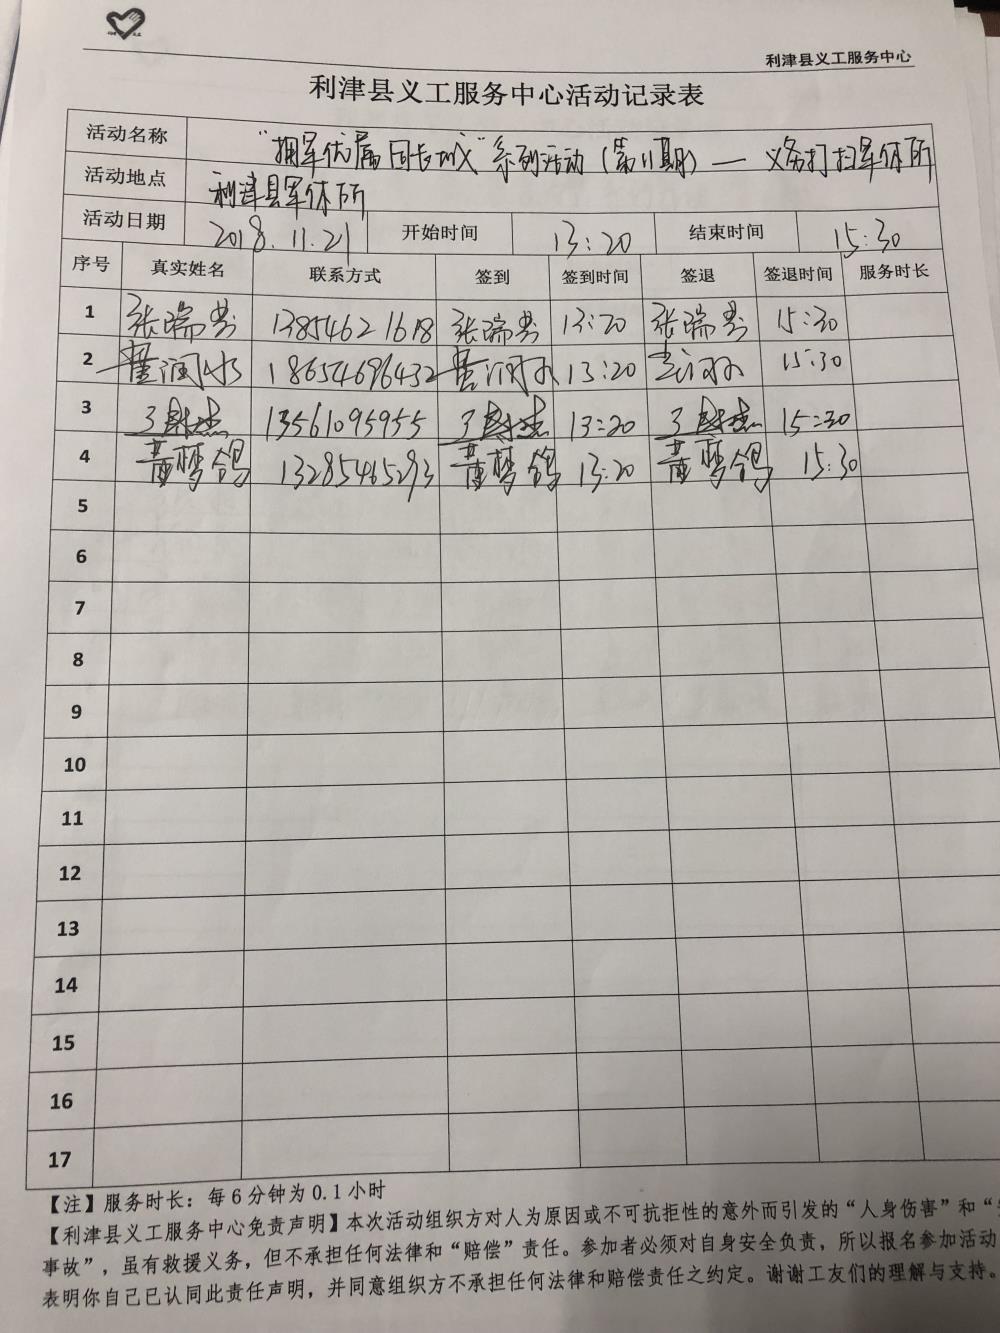 利津县义工服务中心
利津县义工服务中心活动记录表
活动名称 “拥军优属 同长城”系列活动（第11期）— 义务打扫军休所
活动地点 利津县军休所
活动日期 2018.11.21 开始时间 13:20 结束时间 15:30
序号 真实姓名 联系方式 签到 签到时间 签退 签退时间 服务时长
1 张瑞芳 13854621618 张瑞芳 13:20 张瑞芳 15:30
2 18654696432 13:20 15:30
3 13561095955 13:20 15:30
4 黄梦鸽 13285465293 黄梦鸽 13:20 黄梦鸽 15:30
5
6
7
8
9
10
11
12
13
14
15
16
17
【注】服务时长：每6分钟为0.1小时
【利津县义工服务中心免责声明】本次活动组织方对人为原因或不可抗拒性的意外而引发的“人身伤害”和“
事故”，虽有救援义务，但不承担任何法律和“赔偿”责任。参加者必须对自身安全负责，所以报名参加活动
表明你自己已认同此责任声明，并同意组织方不承担任何法律和赔偿责任之约定。谢谢工友们的理解与支持。